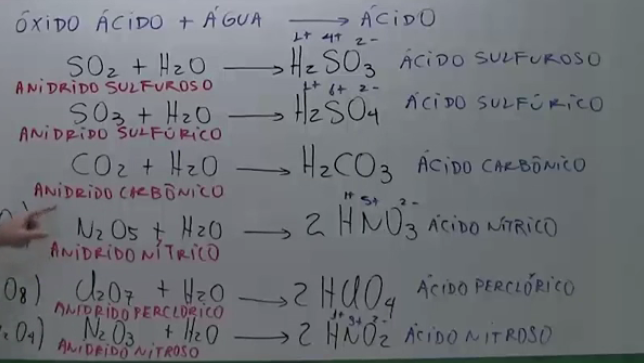 ÓXIDO ÁCIDO + ÁGUA ⟶ ÁCIDO
1+ 4+ 2-
SO2 + H2O ⟶ H2SO3 ÁCIDO SULFUROSO
ANIDRIDO SULFUROSO
1+ 6+ 2-
SO3 + H2O ⟶ H2SO4 ÁCIDO SULFÚRICO
ANIDRIDO SULFÚRICO
CO2 + H2O ⟶ H2CO3 ÁCIDO CARBÔNICO
ANIDRIDO CARBÔNICO
1+ 5+ 2-
N2O5 + H2O ⟶ 2 HNO3 ÁCIDO NÍTRICO
ANIDRIDO NÍTRICO
O8) Cl2O7 + H2O ⟶ 2 HClO4 ÁCIDO PERCLÓRICO
ANIDRIDO PERCLÓRICO
1+ 3+ 2-
O4) N2O3 + H2O ⟶ 2 HNO2 ÁCIDO NITROSO
ANIDRIDO NITROSO